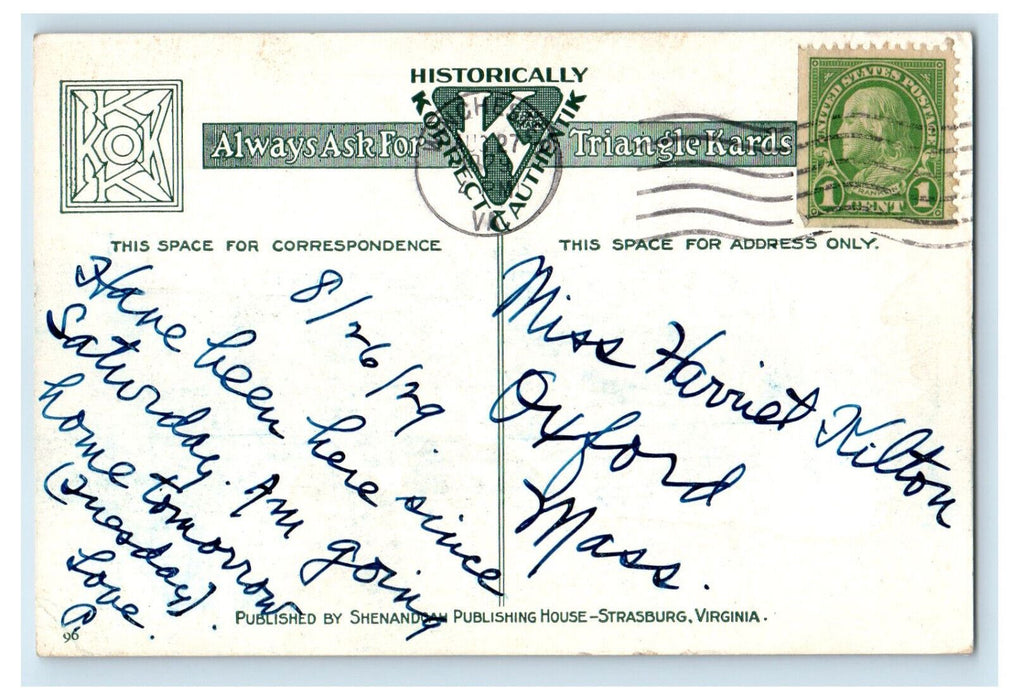 HISTORICALLY
KORRECT & AUTHENTIK
K
Always Ask For Triangle Kards
UNITED STATES POSTAGE
FRANKLIN
1 CENT 1
27
THIS SPACE FOR CORRESPONDENCE
THIS SPACE FOR ADDRESS ONLY.
8/26/29.
Have been here since
Saturday. Am going
home tomorrow
(Tuesday).
Love.
Miss Harriet Kilton
Oxford
Mass.
PUBLISHED BY SHENANDOAH PUBLISHING HOUSE–STRASBURG, VIRGINIA.
96